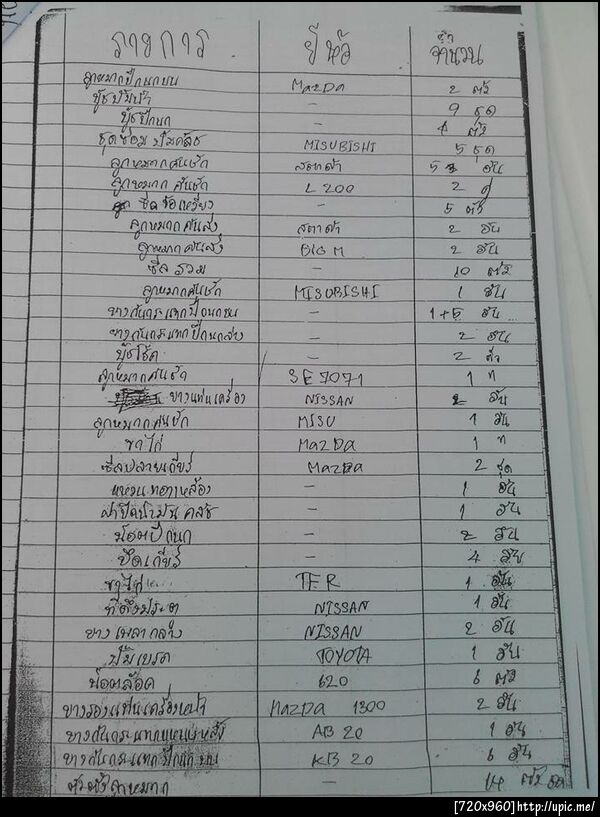 รายการ ยี่ห้อ จำนวน
ลูกหมากปีกนกบน Mazda 2 ตัว
บู๊ชปั๊มน้ำ - 9 ชุด
บู๊ชปีกนก - 4 ตัว
ชุดซ่อม ปั๊มคลัช MISUBISHI 5 ชุด
ลูกหมากคันชัก สตาด้า 5 อัน
ลูกหมาก คันชัก L 200 2 คู่
- 5 ตัว
ลูกหมากคันส่ง สตาด้า 2 อัน
ลูกหมากคันส่ง BIG M 2 อัน
ซีล รวม - 10 ตัว
ลูกหมากคันชัก MISUBISHI 1 อัน
ยางกันกระแทกปีกนกบน - 1+5 อัน
ยางกันกระแทกปีกนกล่าง - 2 อัน
บู๊ชโช้ค - 2 ตัว
ลูกหมากคันชัก SE 7071 1
ยางแท่นเครื่อง NISSAN 2 อัน
ลูกหมากคันชัก MISU 1 อัน
ขาไก่ Mazda 1
ซีลปลายเกียร์ Mazda 2 ชุด
- 1 อัน
ฝาปิดน้ำมัน คลัช - 1 อัน
น๊อตปีกนก - 2 อัน
ยึดเกียร์ - 4 อัน
ขาไก่ TFR 1 อัน
NISSAN 1 อัน
ยางเพลากลาง NISSAN 2 อัน
ปั๊มเบรค TOYOTA 1 อัน
น๊อตล้อค 620 6 ตัว
ยางรองแท่นเครื่องหน้า Mazda 1300 2 อัน
ยางกันกระแทกแหนบหลัง AB 20 1 อัน
ยางกันกระแทกปีกนกบน KB 20 6 อัน
ลูกหมาก -
[720x960]http://upic.me/